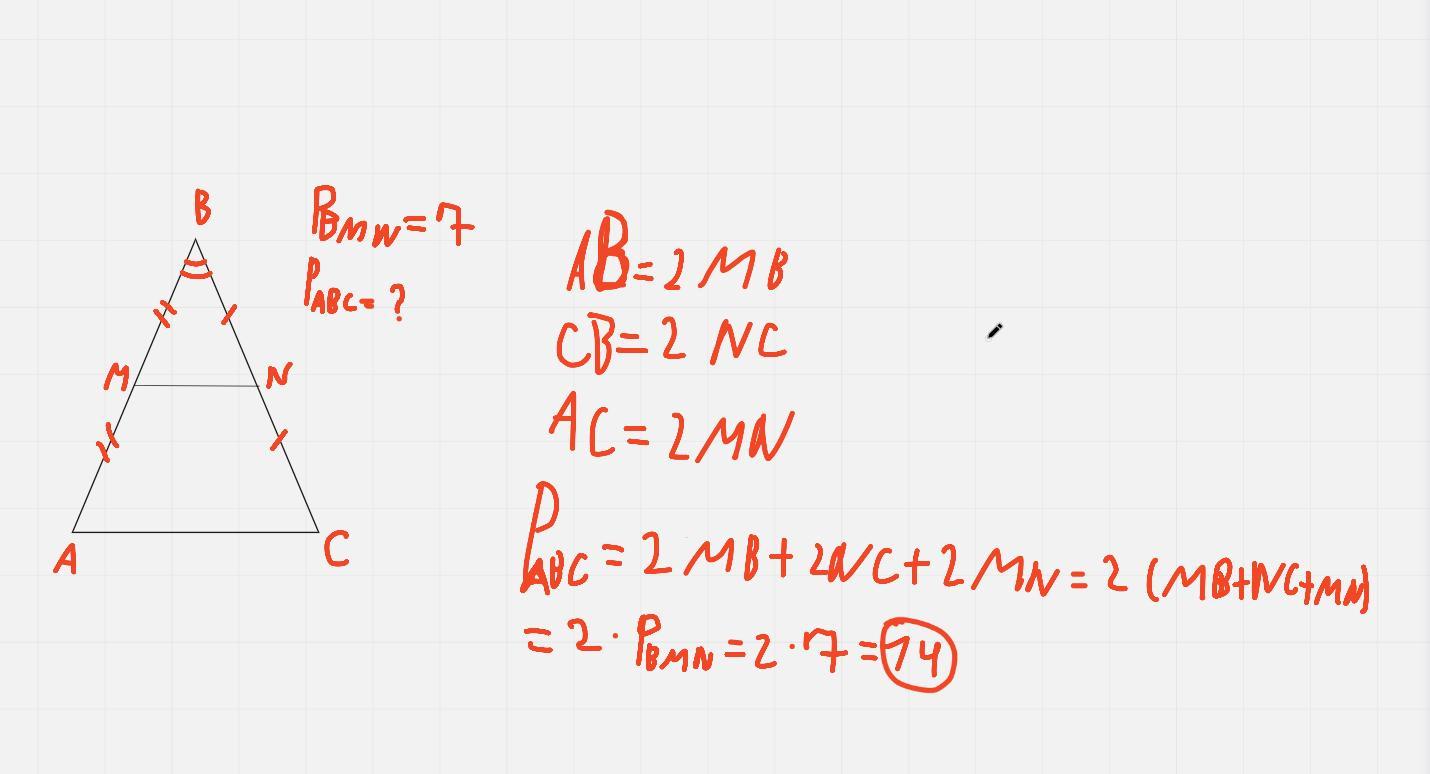 B
P_BMN = 7
P_ABC = ?
M
N
A
C
AB = 2 MB
CB = 2 NC
AC = 2MN
P_ABC = 2 MB + 2NC + 2 MN = 2 (MB+NC+MN)
= 2 · P_BMN = 2 · 7 = 14